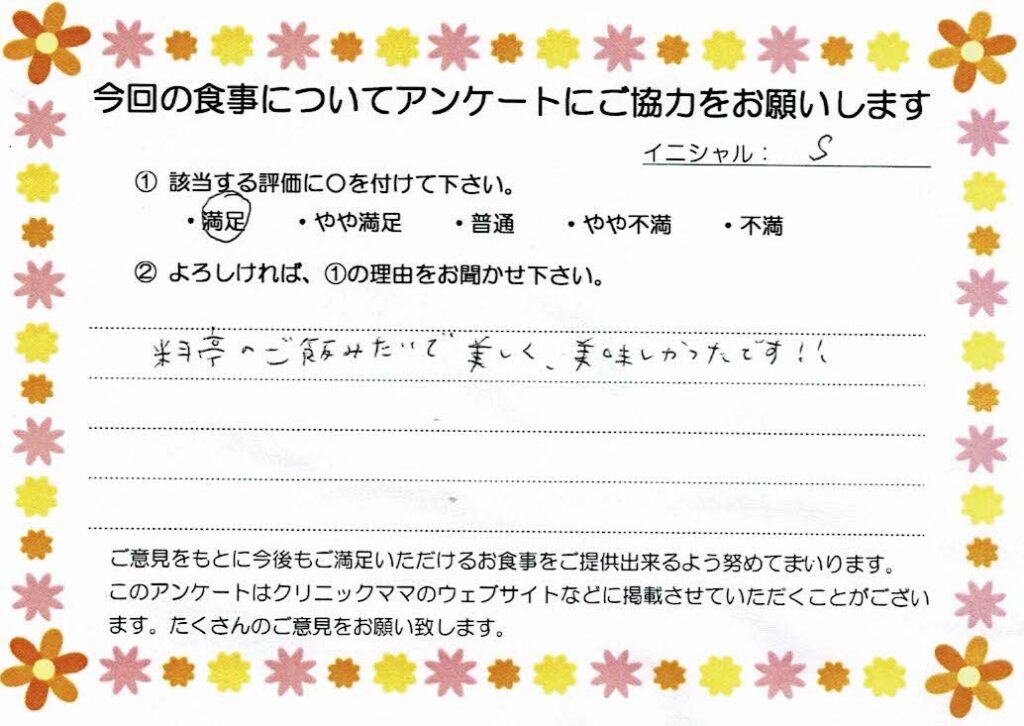 今回の食事についてアンケートにご協力をお願いします
イニシャル： S
① 該当する評価に〇を付けて下さい。
・満足 ・やや満足 ・普通 ・やや不満 ・不満
② よろしければ、①の理由をお聞かせ下さい。
料亭のご飯みたいで美しく、美味しかったです!!
ご意見をもとに今後もご満足いただけるお食事をご提供出来るよう努めてまいります。
このアンケートはクリニックママのウェブサイトなどに掲載させていただくことがござい
ます。たくさんのご意見をお願い致します。